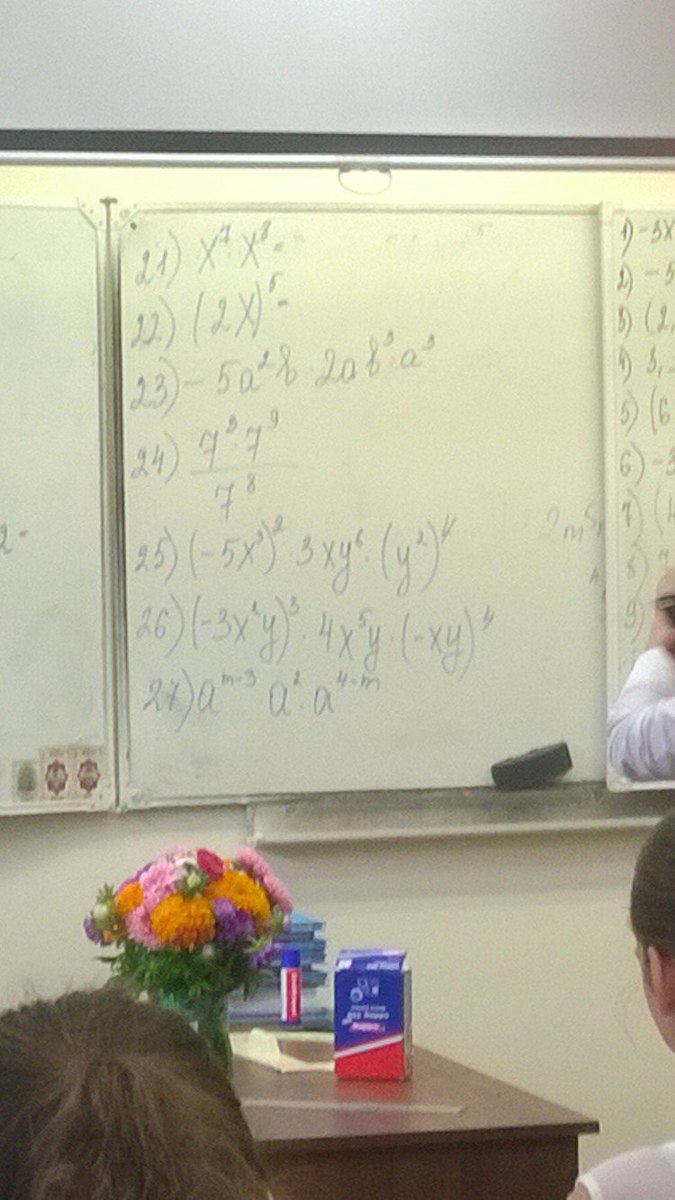 21) x⁷ · x⁸ =
22) (2x)⁵ =
23) - 5a²b · 2ab³ · a³
24) 7³ · 7⁹
7⁸
25) (-5x³)² · 3xy⁶ · (y²)⁴
26) (-3x²y)³ · 4x⁵y · (-xy)⁴
27) a^(m-3) a² · a^(4-m)
2m⁵
2 -
1) -3x
2) -5
3) (2,
4) 3,
5) (6
6) -3
7) (
8)
9)